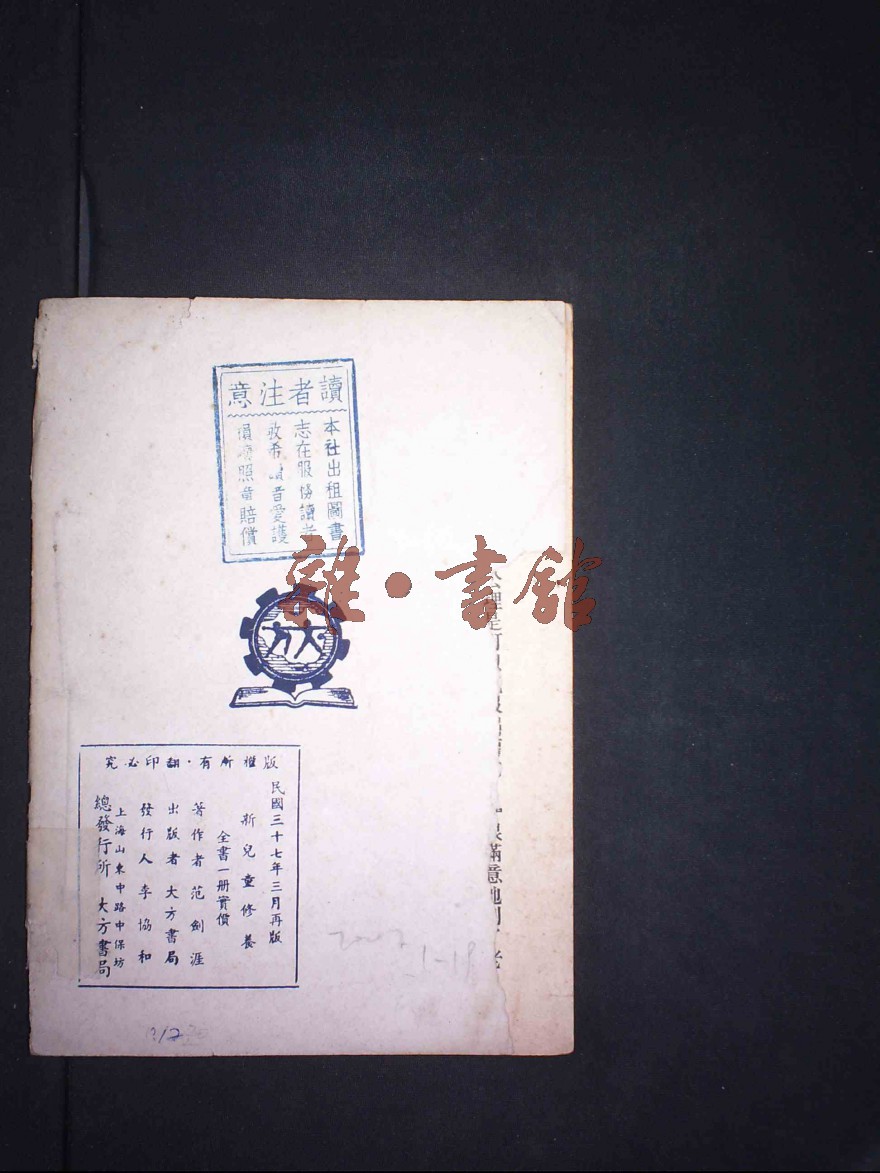 讀者注意
本社出租圖書
志在服務讀者
敬希讀者愛護
損壞照章賠償
雜·書舘
版權所有·翻印必究
民國三十七年三月再版
新兒童修養
全書一册實價
著作者 范劍涯
出版者 大方書局
發行人 李協和
上海山東中路中保坊
總發行所 大方書局
滿意地
1-18